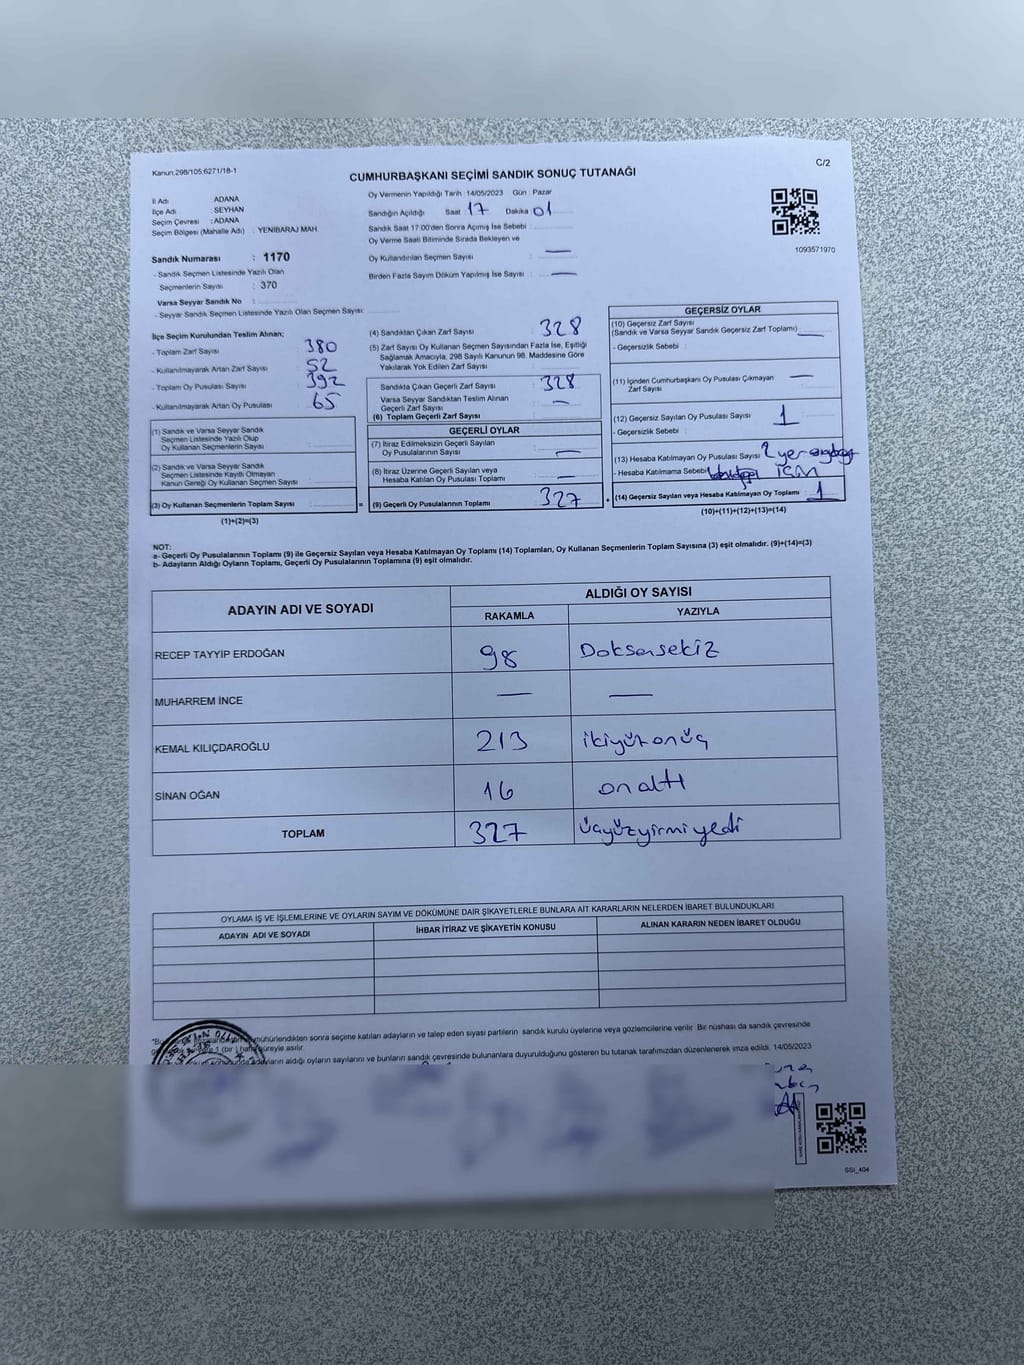 Kanun:298/105;6271/18-1
C/2
CUMHURBAŞKANI SEÇİMİ SANDIK SONUÇ TUTANAĞI
İl Adı ADANA
İlçe Adı : SEYHAN
Seçim Çevresi : ADANA
Seçim Bölgesi (Mahalle Adı) : YENİBARAJ MAH
Sandık Numarası : 1170
- Sandık Seçmen Listesinde Yazılı Olan
Seçmenlerin Sayısı : 370
Varsa Seyyar Sandık No :
- Seyyar Sandık Seçmen Listesinde Yazılı Olan Seçmen Sayısı:
Oy Vermenin Yapıldığı Tarih :14/05/2023 Gün : Pazar
Sandığın Açıldığı Saat : 17 Dakika : 01
Sandık Saat 17:00'den Sonra Açımış İse Sebebi :
Oy Verme Saati Bitiminde Sırada Bekleyen ve
Oy Kullandırılan Seçmen Sayısı : —
Birden Fazla Sayım Döküm Yapılmış İse Sayısı : —
1093571970
İlçe Seçim Kurulundan Teslim Alınan;
- Toplam Zarf Sayısı : 380
- Kullanılmayarak Artan Zarf Sayısı : 52
- Toplam Oy Pusulası Sayısı : 392
- Kullanılmayarak Artan Oy Pusulası : 65
(1) Sandık ve Varsa Seyyar Sandık
Seçmen Listesinde Yazılı Olup
Oy Kullanan Seçmenlerin Sayısı :
(2) Sandık ve Varsa Seyyar Sandık
Seçmen Listesinde Kayıtlı Olmayan
Kanun Gereği Oy Kullanan Seçmen Sayısı :
(3) Oy Kullanan Seçmenlerin Toplam Sayısı :
(1)+(2)=(3)
(4) Sandıktan Çıkan Zarf Sayısı : 328
(5) Zarf Sayısı Oy Kullanan Seçmen Sayısından Fazla İse, Eşitliği
Sağlamak Amacıyla, 298 Sayılı Kanunun 98. Maddesine Göre
Yakılarak Yok Edilen Zarf Sayısı :
Sandıkta Çıkan Geçerli Zarf Sayısı : 328
Varsa Seyyar Sandıktan Teslim Alınan
Geçerli Zarf Sayısı : —
(6) Toplam Geçerli Zarf Sayısı :
GEÇERLİ OYLAR
(7) İtiraz Edilmeksizin Geçerli Sayılan
Oy Pusulalarının Sayısı : —
(8) İtiraz Üzerine Geçerli Sayılan veya
Hesaba Katılan Oy Pusulası Toplamı : —
(9) Geçerli Oy Pusulalarının Toplamı : 327
GEÇERSİZ OYLAR
(10) Geçersiz Zarf Sayısı
(Sandık ve Varsa Seyyar Sandık Geçersiz Zarf Toplamı) : —
- Geçersizlik Sebebi :
(11) İçinden Cumhurbaşkanı Oy Pusulası Çıkmayan —
Zarf Sayısı
(12) Geçersiz Sayılan Oy Pusulası Sayısı : 1
- Geçersizlik Sebebi :
(13) Hesaba Katılmayan Oy Pusulası Sayısı : 2 yer
- Hesaba Katılmama Sebebi : için
(14) Geçersiz Sayılan veya Hesaba Katılmayan Oy Toplamı : 1
(10)+(11)+(12)+(13)=(14)
NOT:
a- Geçerli Oy Pusulalarının Toplamı (9) ile Geçersiz Sayılan veya Hesaba Katılmayan Oy Toplamı (14) Toplamları, Oy Kullanan Seçmenlerin Toplam Sayısına (3) eşit olmalıdır. (9)+(14)=(3)
b- Adayların Aldığı Oyların Toplamı, Geçerli Oy Pusulalarının Toplamına (9) eşit olmalıdır.
ADAYIN ADI VE SOYADI
ALDIĞI OY SAYISI
RAKAMLA YAZIYLA
RECEP TAYYİP ERDOĞAN 98 Doksansekiz
MUHARREM İNCE — —
KEMAL KILIÇDAROĞLU 213 ikiyüzonüç
SİNAN OĞAN 16 onaltı
TOPLAM 327 üçyüzyirmiyedi
OYLAMA İŞ VE İŞLEMLERİNE VE OYLARIN SAYIM VE DÖKÜMÜNE DAİR ŞİKAYETLERLE BUNLARA AİT KARARLARIN NELERDEN İBARET BULUNDUKLARI
ADAYIN ADI VE SOYADI İHBAR İTİRAZ VE ŞİKAYETİN KONUSU ALINAN KARARIN NEDEN İBARET OLDUĞU
mühürlendikten sonra seçime katılan adayların ve talep eden siyasi partilerin sandık kurulu üyelerine veya gözlemcilerine verilir. Bir nüshası da sandık çevresinde
1 (bir) hafta süreyle asılır.
adayların aldığı oyların sayılarını ve bunların sandık çevresinde bulunanlara duyurulduğunu gösteren bu tutanak tarafımızdan düzenlenerek imza edildi. 14/05/2023
SSI_404